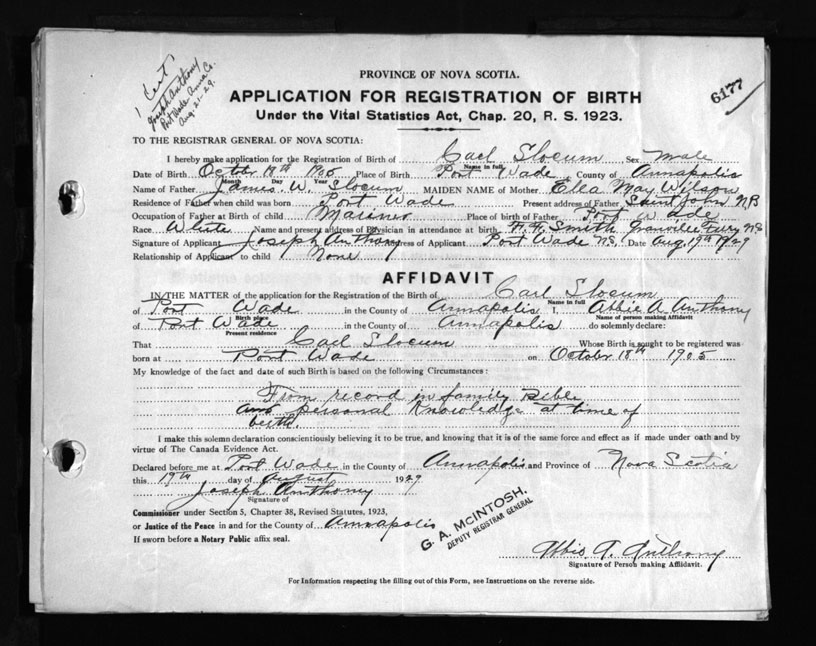 1 Cert
Joseph Anthony
Port Wade Anna Co.
Aug-21-29.
6177
PROVINCE OF NOVA SCOTIA.
APPLICATION FOR REGISTRATION OF BIRTH
Under the Vital Statistics Act, Chap. 20, R. S. 1923.
TO THE REGISTRAR GENERAL OF NOVA SCOTIA:
I hereby make application for the Registration of Birth of Carl Slocum Sex Male
Name in full
Date of Birth October 18th 1905 Place of Birth Port Wade County of Annapolis
Month Day Year
Name of Father James W. Slocum MAIDEN NAME of Mother Ella May Wilson
Residence of Father when child was born Port Wade Present address of Father Saint John NB
Occupation of Father at Birth of child Mariner Place of birth of Father Port Wade
Race White Name and present address of Physician in attendance at birth F. Smith Granville Ferry NS
Signature of Applicant Joseph Anthony Address of Applicant Port Wade NS. Date Aug 19th 1929
Relationship of Applicant to child None
AFFIDAVIT
IN THE MATTER of the application for the Registration of the Birth of Carl Slocum
Name in full
of Port Wade in the County of Annapolis I, Abbie A. Anthony
Birth place Name of person making Affidavit
of Port Wade in the County of Annapolis do solemnly declare:
Present residence
That Carl Slocum Whose Birth is sought to be registered was
born at Port Wade on October 18th 1905
My knowledge of the fact and date of such Birth is based on the following Circumstances:
From record in family Bible
and personal knowledge at time of
birth.
I make this solemn declaration conscientiously believing it to be true, and knowing that it is of the same force and effect as if made under oath and by
virtue of The Canada Evidence Act.
Declared before me at Port Wade in the County of Annapolis and Province of Nova Scotia
this 19th day of August 1929
Joseph Anthony
Signature of
Commissioner under Section 5, Chapter 38, Revised Statutes, 1923,
or Justice of the Peace in and for the County of Annapolis
If sworn before a Notary Public affix seal.
G. A. McINTOSH,
DEPUTY REGISTRAR GENERAL
Abbie A. Anthony
Signature of Person making Affidavit.
For Information respecting the filling out of this Form, see Instructions on the reverse side.